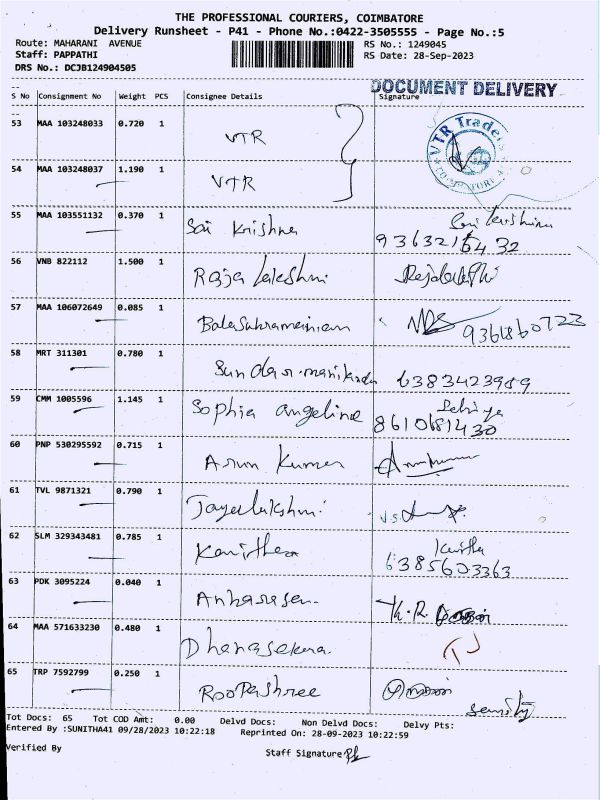 THE PROFESSIONAL COURIERS, COIMBATORE
Delivery Runsheet - P41 - Phone No.:0422-3505555 - Page No.:5
Route: MAHARANI AVENUE RS No.: 1249045
Staff: PAPPATHI RS Date: 28-Sep-2023
DRS No.: DCJB124904505
DOCUMENT DELIVERY
S No Consignment No Weight PCS Consignee Details Signature
53 MAA 103248033 0.720 1 VTR
VTR Traders
54 MAA 103248037 1.190 1 VTR
55 MAA 103551132 0.370 1 Sai Krishna Sai Krishna
56 VNB 822112 1.500 1 Raja lakshmi
57 MAA 106072649 0.085 1 Balasubramaniam 9361860723
58 MRT 311301 0.780 1 Sundar manikanda 6383423989
59 CMM 1005596 1.145 1 Sophia angeline
8610681430
60 PNP 530295592 0.715 1 Arun Kumar
61 TVL 9871321 0.790 1 Jayalakshmi
62 SLM 329343481 0.785 1
6385603363
63 PDK 3095224 0.040 1 Anbarasan
64 MAA 571633230 0.480 1 Dhanasekara
65 TRP 7592799 0.250 1 RooPashree
Tot Docs: 65 Tot COD Amt: 0.00 Delvd Docs: Non Delvd Docs: Delvy Pts:
Entered By :SUNITHA41 09/28/2023 10:22:18 Reprinted On: 28-09-2023 10:22:59
Verified By Staff Signature